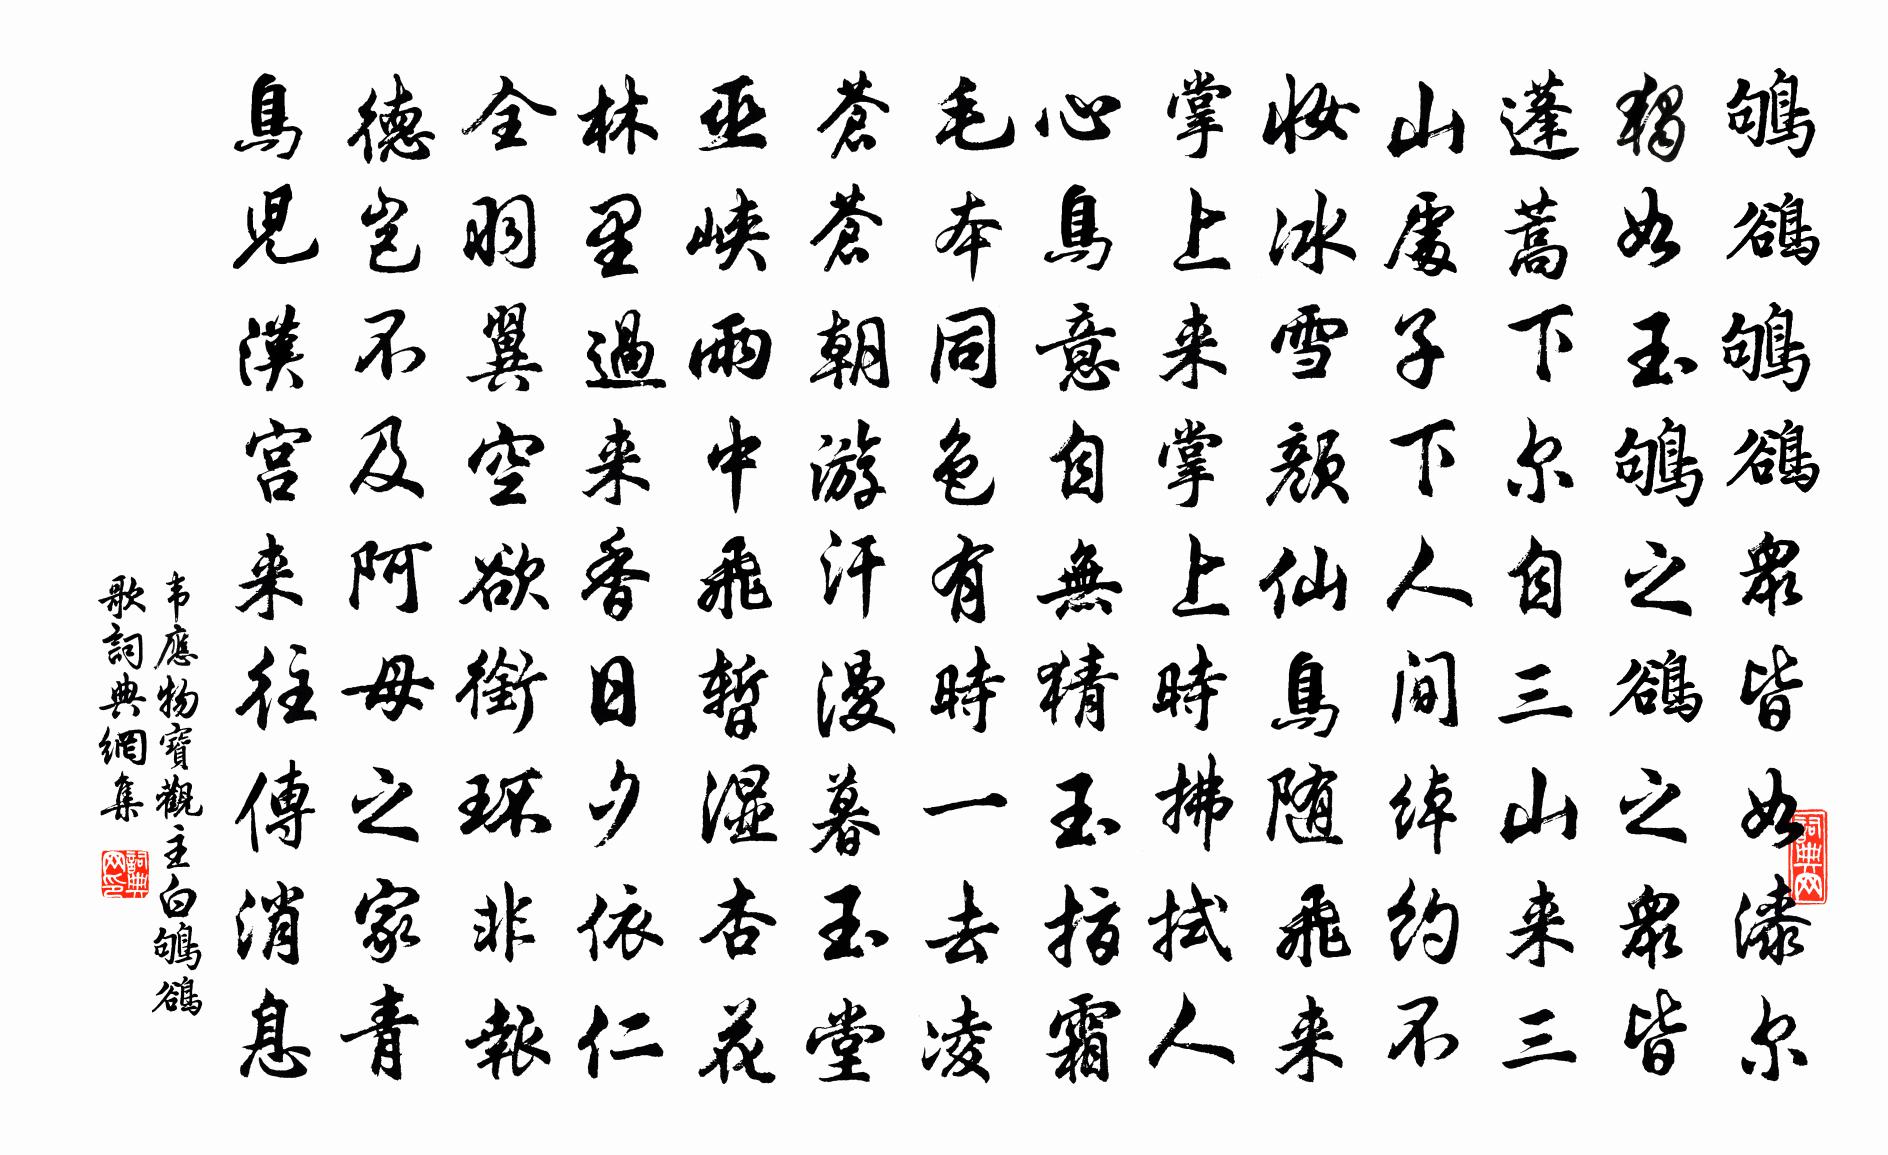 鴝鵒鴝鵒衆皆如漆尔
獨如玉鴝之鵒之衆皆
蓬蒿下尔自三山来三
山處子下人间绰约不
妆冰雪颜仙鳥随飛来
掌上来掌上時拂拭人
心鳥意自無猜玉指霜
毛本同色有時一去凌
蒼蒼朝游汗漫暮玉堂
巫峡雨中飛暫湿杏花
林里過来香日夕依仁
全羽翼空欲銜环非報
德岂不及阿母之家青
鳥兒漢宫来往傳消息
韦應物寶觀主白鴝鵒
歌詞典網集
詞典网
詞典网印